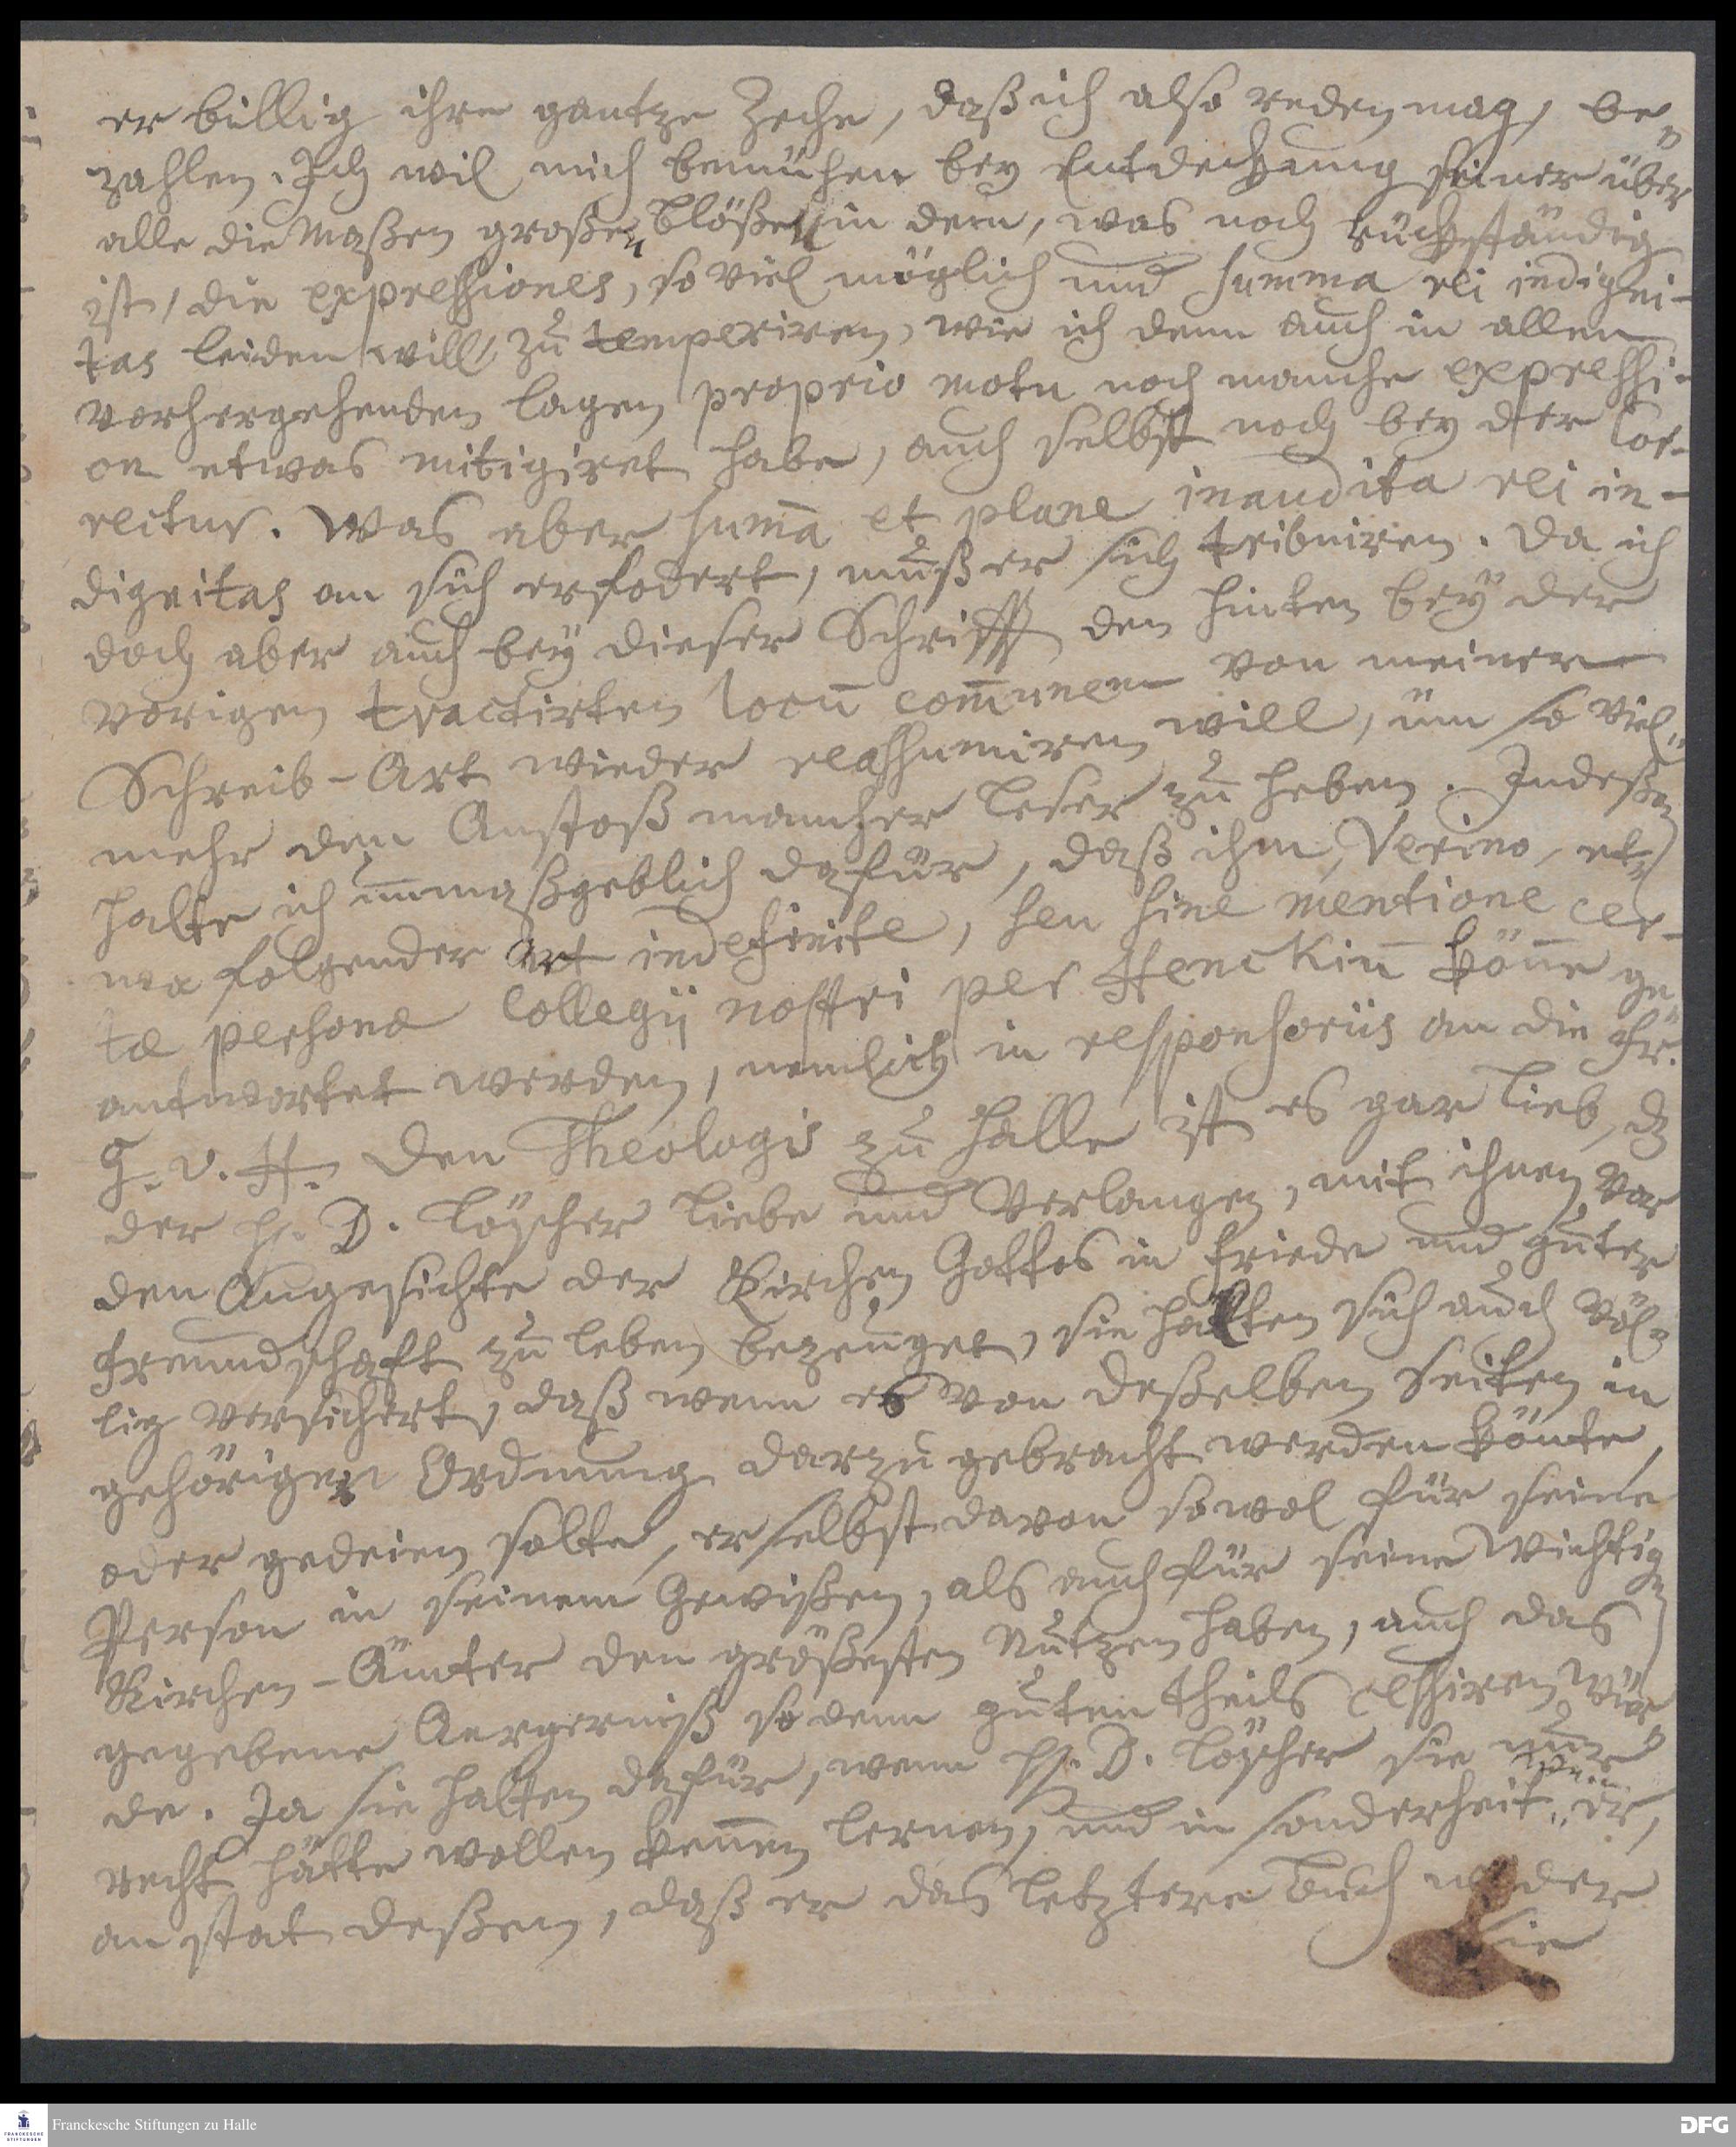 er billig ihre gantze Zeche, daß ich also reden mag, be-
zahlen. Ich wil mich bemühen bey Entdeckung seiner über
alle die Maßen großen blößen in dem, was noch rückständig
ist, die expressiones, so viel möglich und summa rei indigni-
tas leiden will zu temperiren, wie ich denn auch in allen
vorhergehenden lagen proprio motu noch manche expressi-
on etwas mitigiret habe, auch selbst noch bey der Cor-
rectur. Was aber summa et plane inaudita rei in-
dignitas an sich erfodert, muß er sich tribuiren. Da ich
doch aber auch bey dieser Schrifft den hinten bey der
vorigen tractirten locum communem von meiner
Schreib-Art wieder reassumiren will, üm so viel
mehr den Anstoß mancher leser zu heben. Indeßen
halte ich unmaßgeblich dafür, daß ihm, Verino, et-
wa folgender Art indefinite, seu sine mentione cer-
tae personae Collegii nostri per Henckium könne ge-
antwortet werden, nemlich in responsoriis an die Fr.
G. v. H. Den Theologis zu Halle ist es gar lieb, dz
der H. D. Löscher liebe und Verlangen, mit ihnen vor
den Angesichte der Kirchen Gottes in Friede und guter
freundschaft zu leben bezeuget, sie halten sich auch völ-
lig versichert, daß wenn es von deßelben seiten in
gehörigen Ordnung darzu gebracht werden könte,
oder gedeien solte, er selbst davon sowol für seine
Person in seinem Gewißen, als auch für seine wichtige
Kirchen-Ämter den größesten Nutzen haben, auch das
gegebene Aergerniß so denn guten theils cessiren wür-
de. Ja sie halten dafür, wenn H. D. Löscher sie nur
recht hätte wollen kennen lernen, und in sonderheit, wenn er,
anstat deßen, daß er das letztere Buch wider
sie
Franckesche Stiftungen zu Halle
DFG